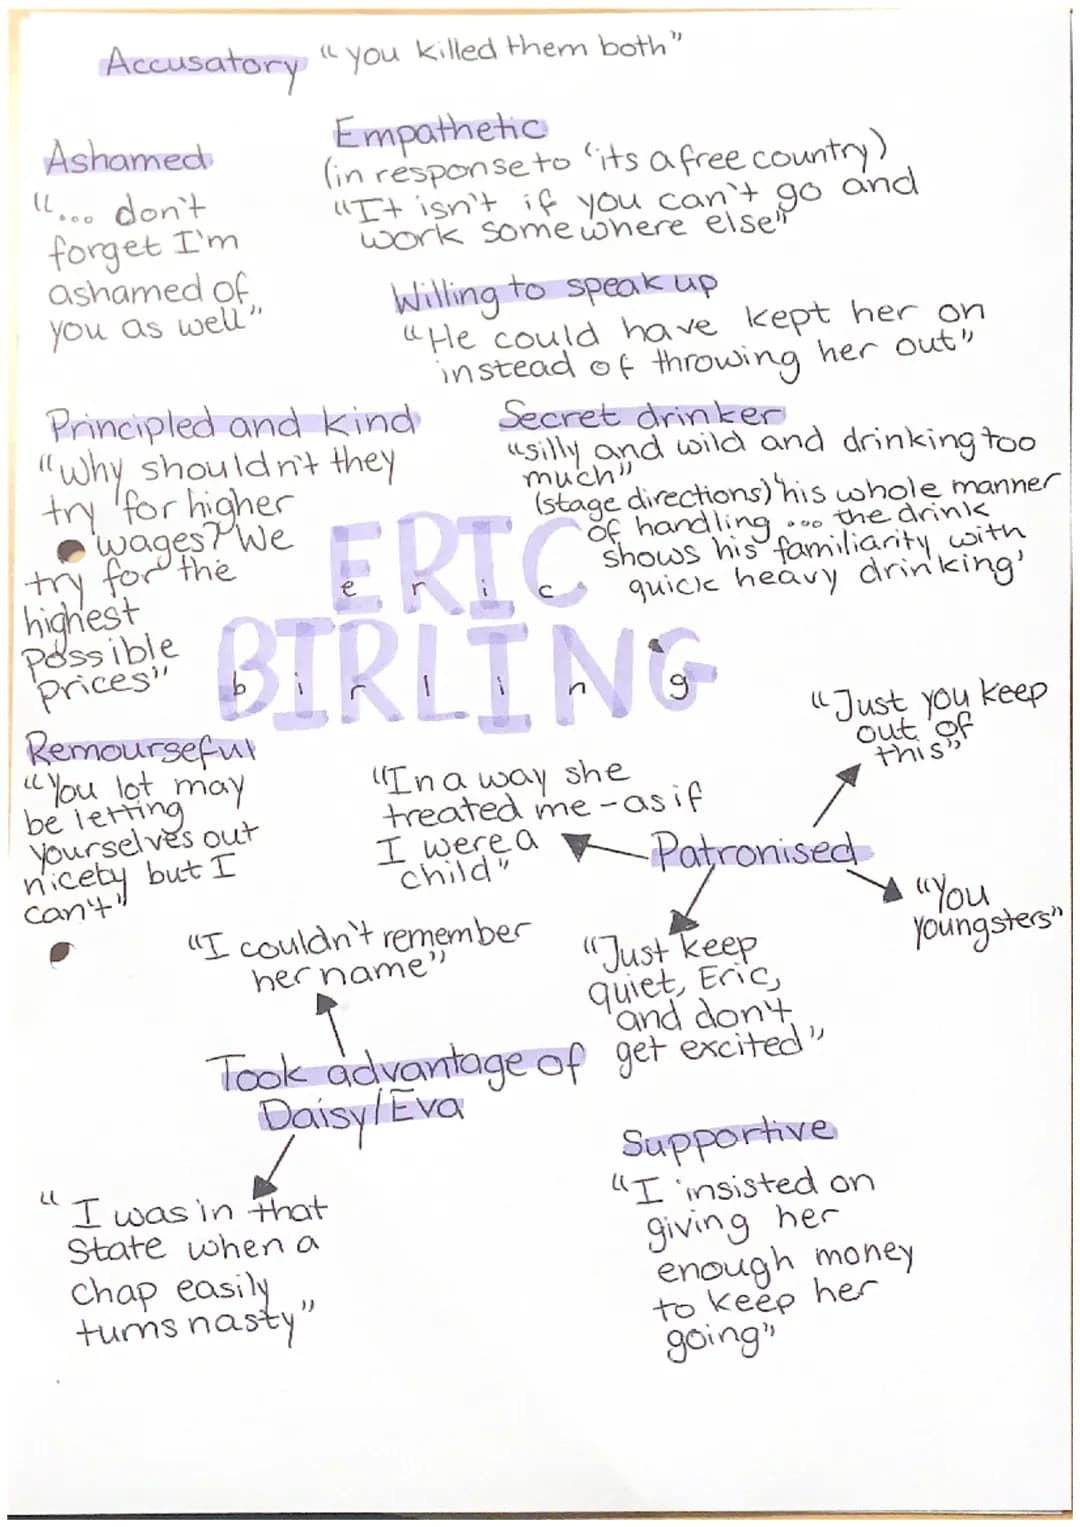 Accusatory "you killed them both"
Ashamed
"... don't
forget I'm
ashamed of
you as well"
Empathetic
(in response to 'its a free country)
"It isn't if you can't go and
work somewhere else"
Willing to speak up
"He could have kept her on
instead of throwing her out"
Principled and kind
"Why shouldn't they
try for higher
wages? We
try for the
highest
possible
prices"
Secret drinker
"silly and wild and drinking too
much"
(stage directions) 'his whole manner
of handling ... the drink
shows his familiarity with
quick heavy drinking'
ERIC
e r i c
BIRLING
b i r l i n g
Remourseful
"You lot may
be letting
yourselves out
nicely but I
can't"
"In a way she
treated me - as if
I were a
child"
Patronised
"Just you keep
out of
this"
"You
youngsters"
"Just keep
quiet, Eric,
and don't
get excited"
"I couldn't remember
her name"
Took advantage of
Daisy/Eva
"I was in that
state when a
chap easily
turns nasty"
Supportive
"I insisted on
giving her
enough money
to keep her
going"